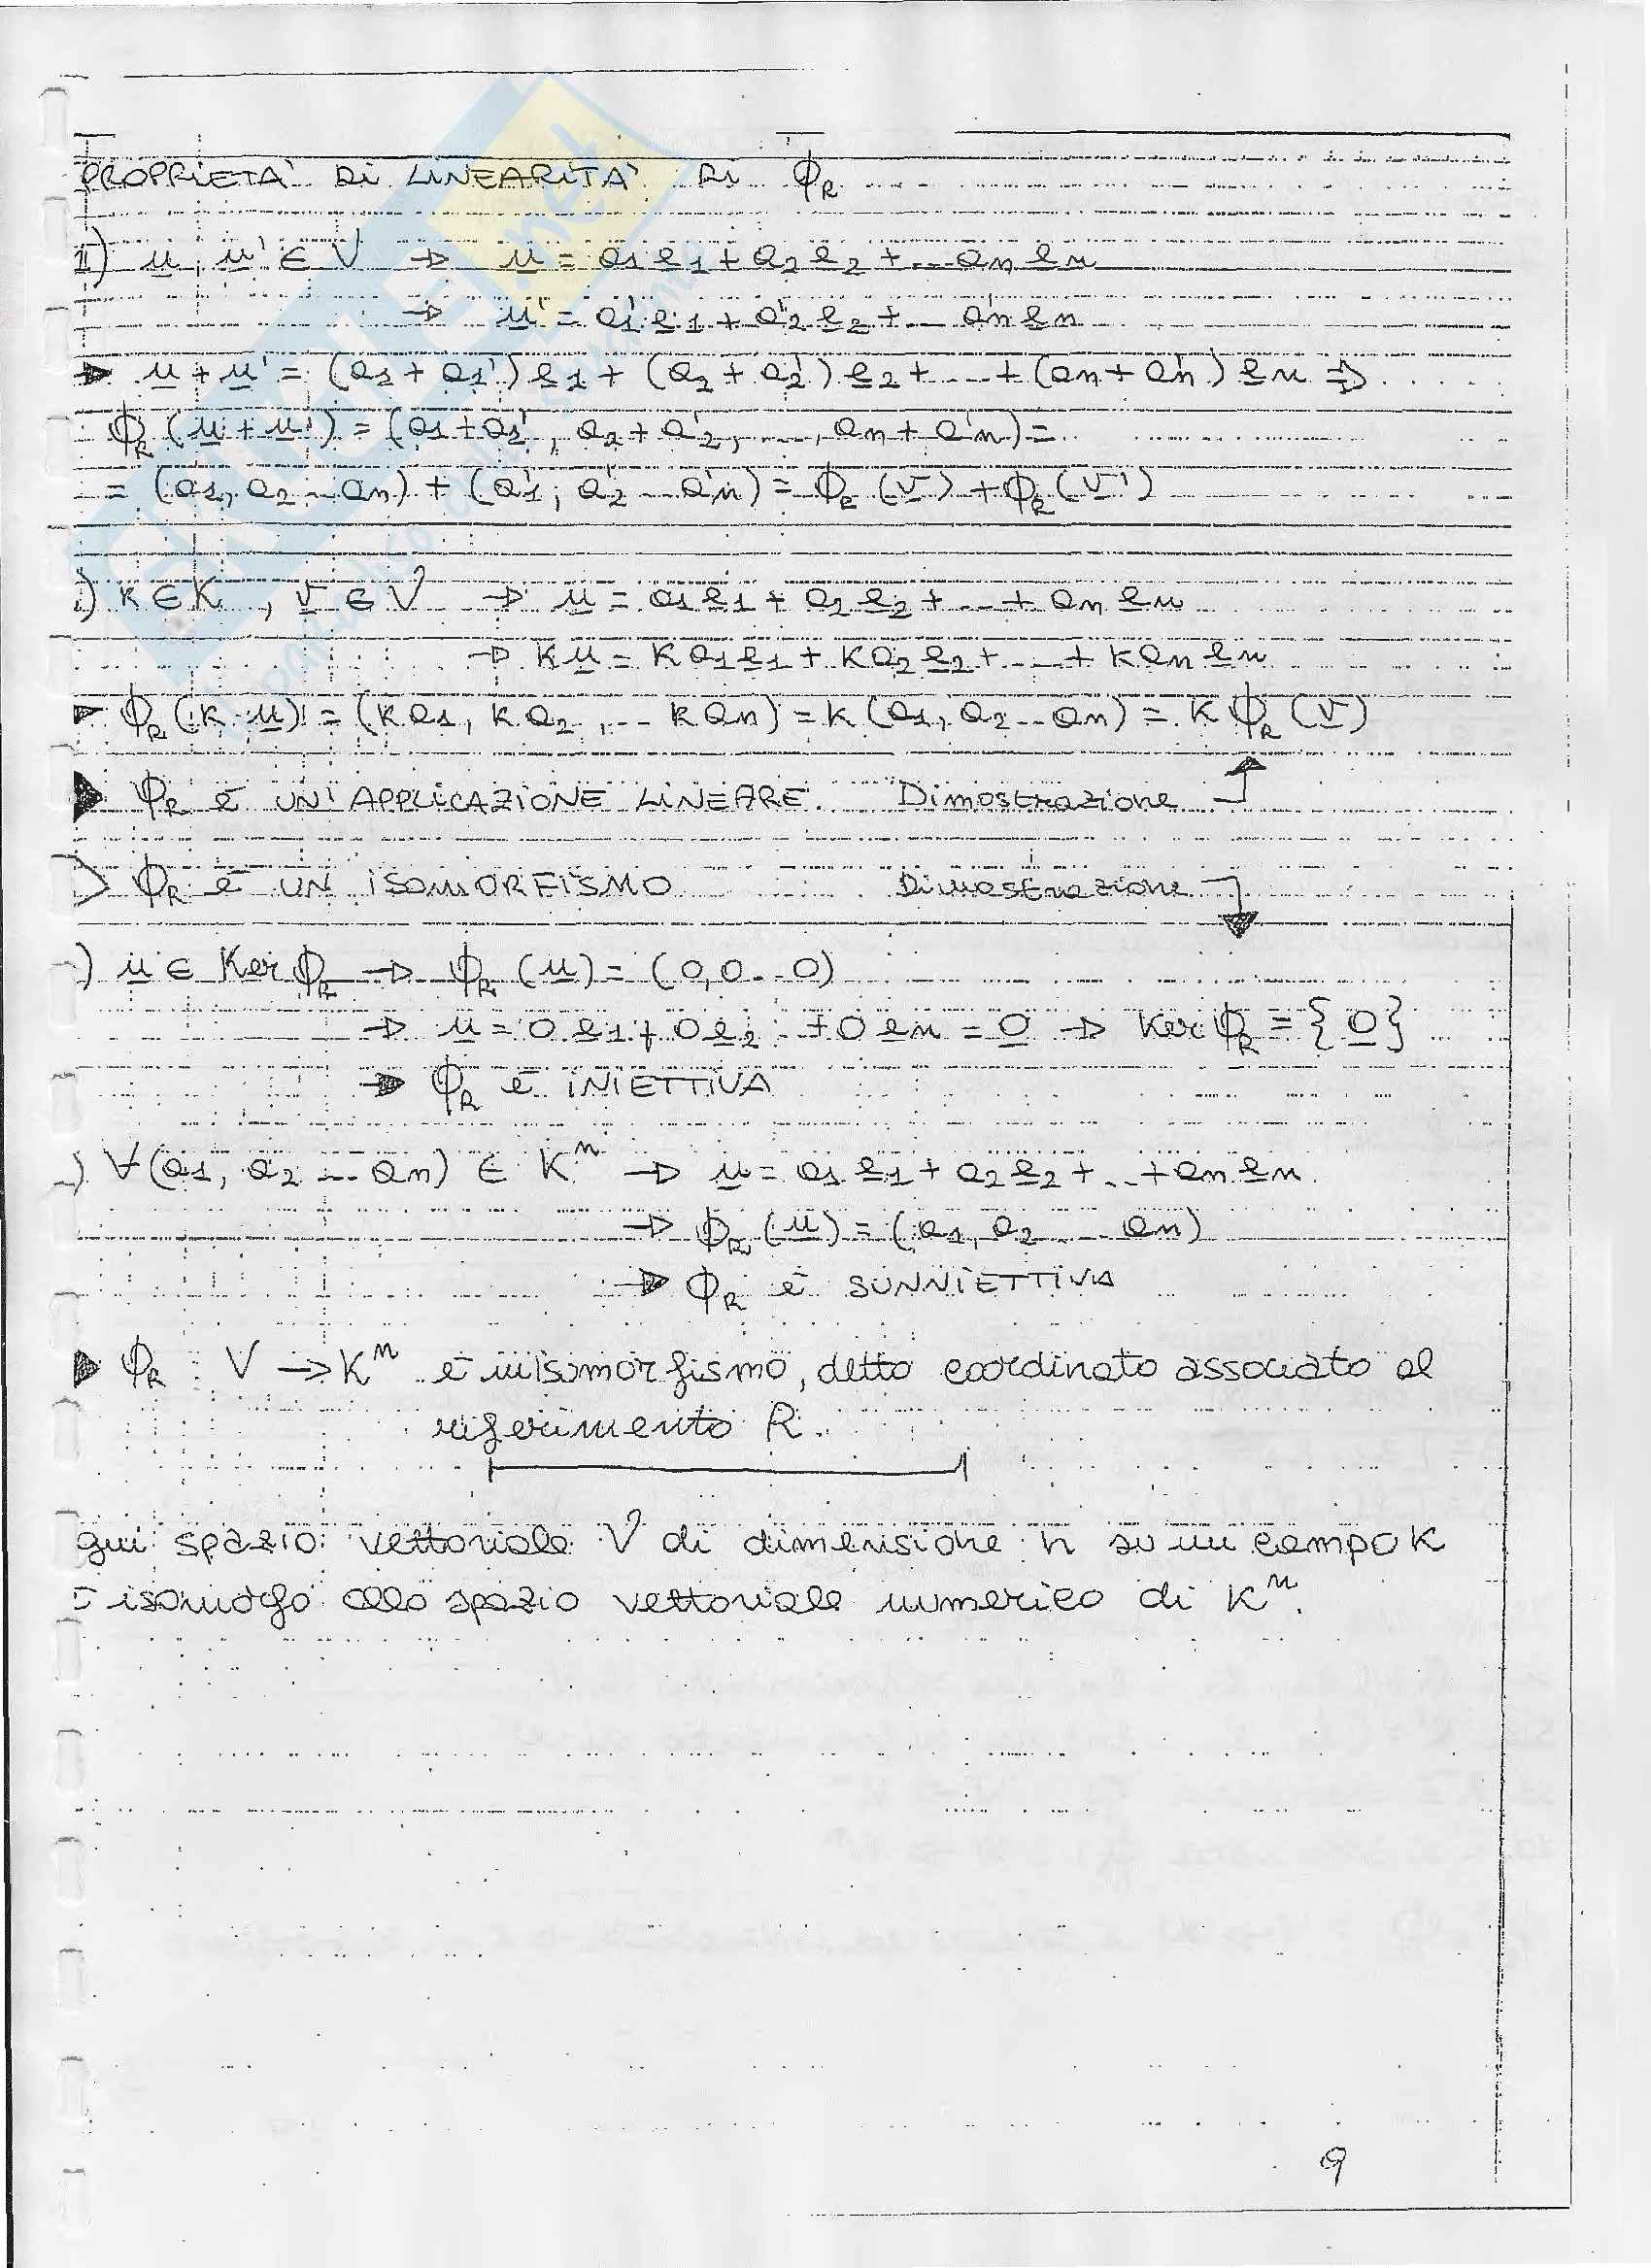 PROPRIETA' DI LINEARITA' DI ϕ_R
1) u, u' ∈ V → u = a1 e1 + a2 e2 + ... an en
→ u' = a'1 e1 + a'2 e2 + ... a'n en
▶ u + u' = (a1 + a1') e1 + (a2 + a2') e2 + ... + (an + a'n) en ⇒
ϕ_R (u + u') = (a1 + a1', a2 + a'2, ..., an + a'n) =
= (a1, a2 ... an) + (a'1, a'2 ... a'n) = ϕ_R (v) + ϕ_R (v')
) k ∈ K, v ∈ V → u = a1 e1 + a2 e2 + ... + an en
→ k u = k a1 e1 + k a2 e2 + ... + k an en
▶ ϕ_R (k · u) = (k a1, k a2, ... k an) = k (a1, a2 ... an) = k ϕ_R (v)
▶ ϕ_R è UN'APPLICAZIONE LINEARE. Dimostrazione ↑
) ϕ_R è UN ISOMORFISMO Dimostrazione ↓
) u ∈ Ker ϕ_R → ϕ_R (u) = (0, 0 ... 0)
→ u = 0 e1 + 0 e2 .. + 0 en = 0 → Ker ϕ_R = {0}
→ ϕ_R è INIETTIVA
) ∀ (a1, a2 ... an) ∈ K^n → u = a1 e1 + a2 e2 + ... + an en
→ ϕ_R (u) = (a1, a2 ... an)
→ ϕ_R è SURRIETTIVA
▶ ϕ_R : V → K^n è un isomorfismo, detto coordinato associato al
riferimento R.
gni spazio vettoriale V di dimensione n su un campo K
è isomorfo allo spazio vettoriale numerico di K^n.
9